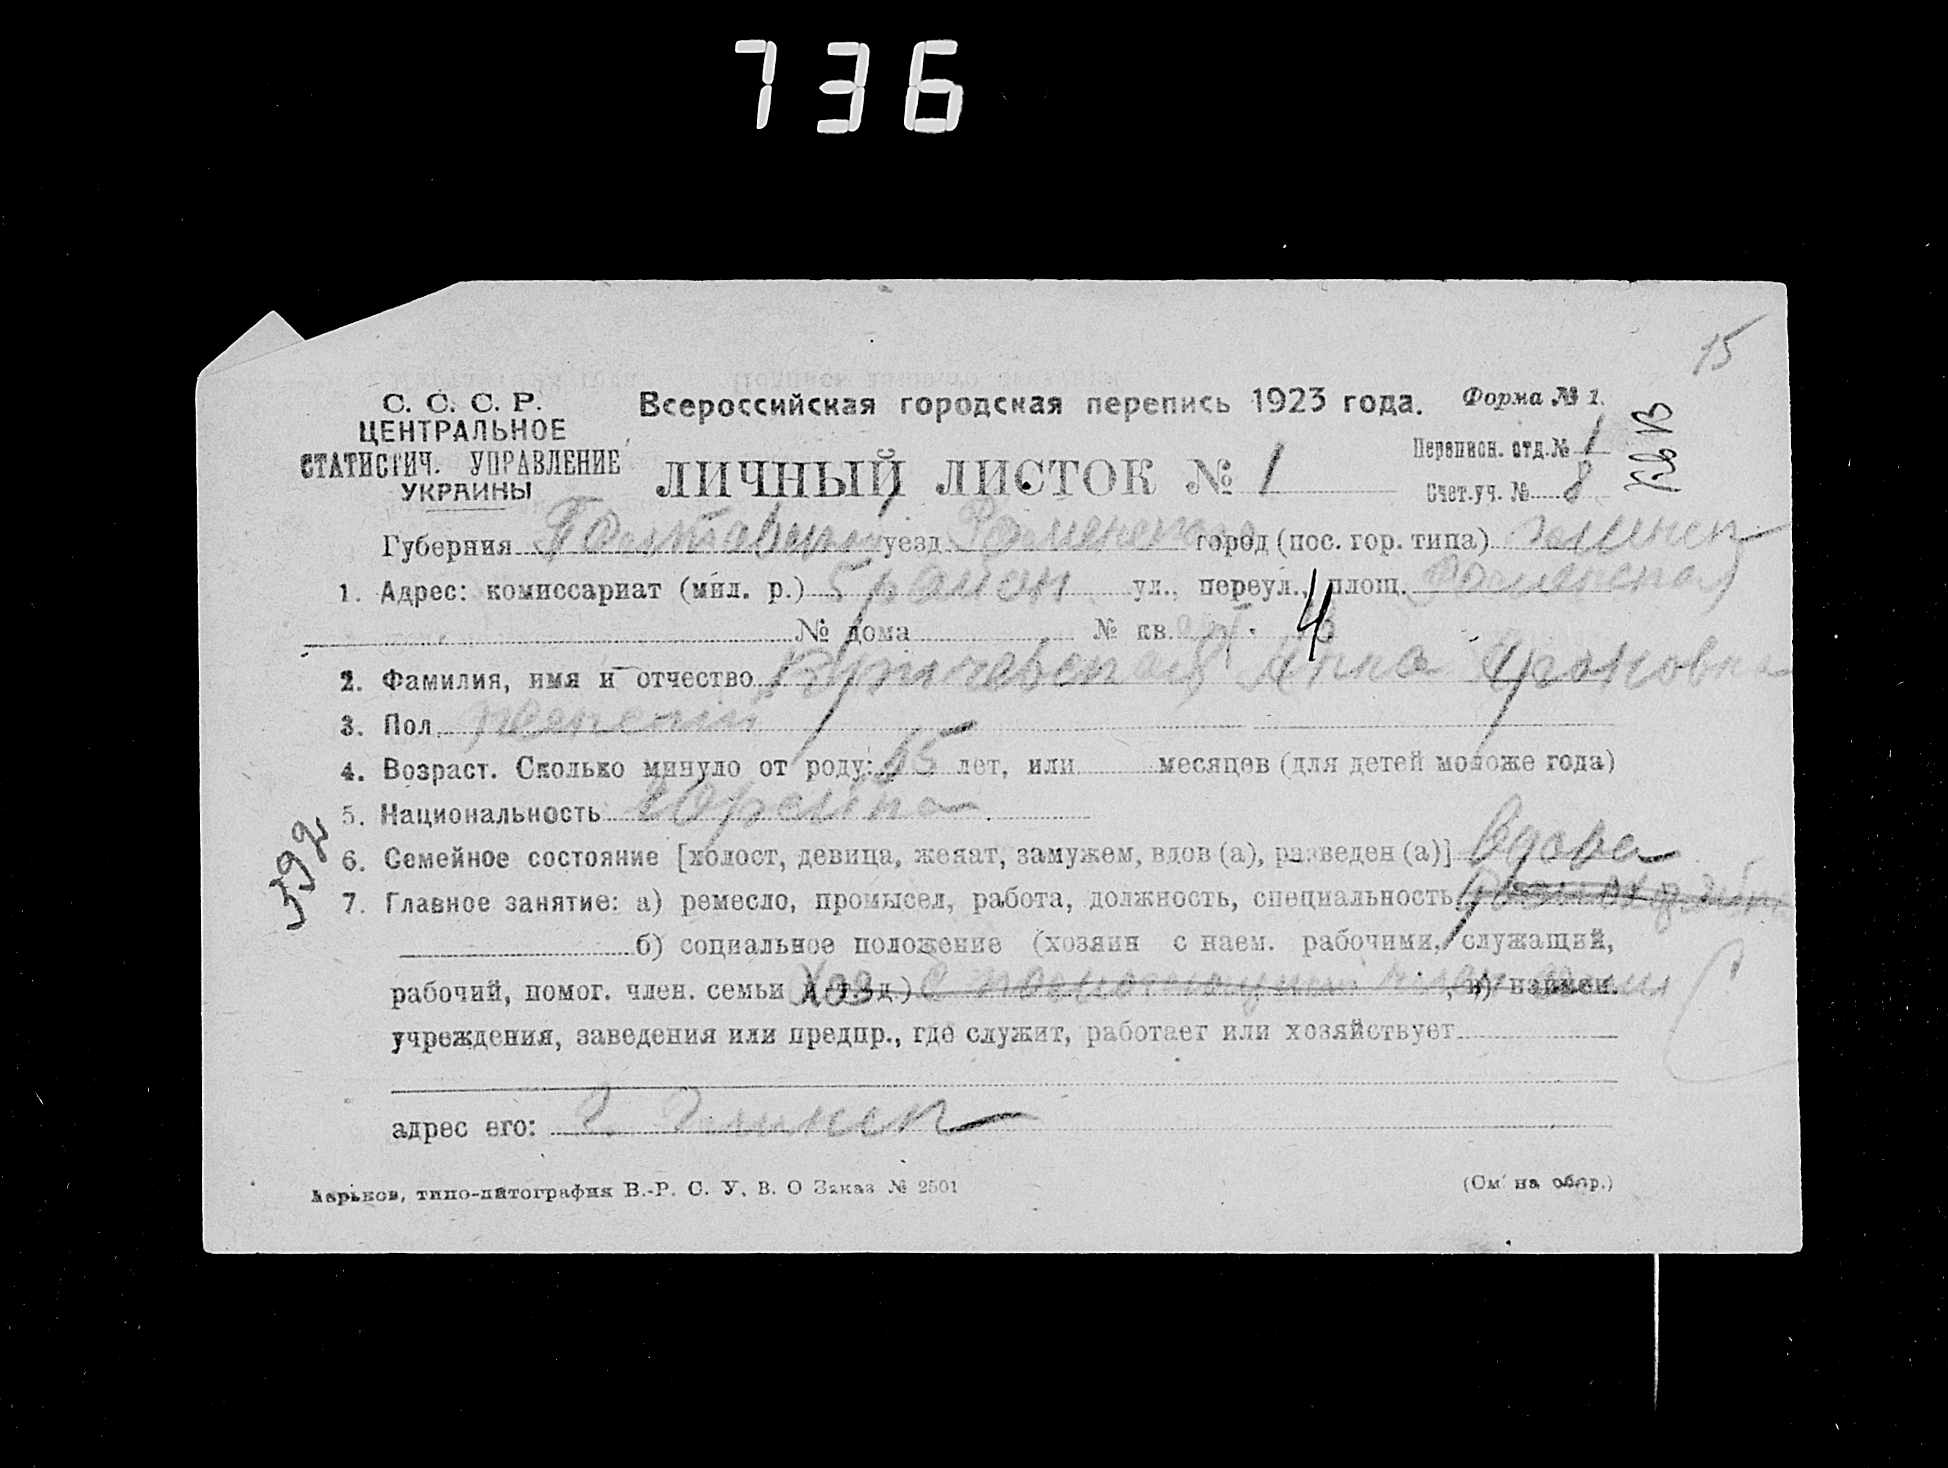 736
15
С. С. С. Р.
ЦЕНТРАЛЬНОЕ
СТАТИСТИЧ. УПРАВЛЕНИЕ
УКРАИНЫ
Всероссийская городская перепись 1923 года.
Форма № 1.
ЛИЧНЫЙ ЛИСТОК № 1
Перепион. отд. № 1
Счет. уч. № 8
Губерния Полтавская уезд Роменский город (пос. гор. типа) Глинск
1. Адрес: комиссариат (мил. р.) 5 район ул., переул., площ. Роменская
№ дома № кв. 4
2. Фамилия, имя и отчество Анна
3. Пол женский
4. Возраст. Сколько минуло от роду: лет, или месяцев (для детей моложе года)
5. Национальность
6. Семейное состояние [холост, девица, женат, замужем, вдов (а), разведен (а)] Вдова
592
7. Главное занятие: а) ремесло, промысел, работа, должность, специальность
б) социальное положение (хозяин с наем. рабочими, служащий,
рабочий, помог. член. семьи и т. д.) Хоз , в) наимен.
учреждения, заведения или предпр., где служит, работает или хозяйствует
адрес его: г. Глинск
Харьков, типо-литография В.-Р. С. У. В. О Заказ № 2501
(См на обор.)